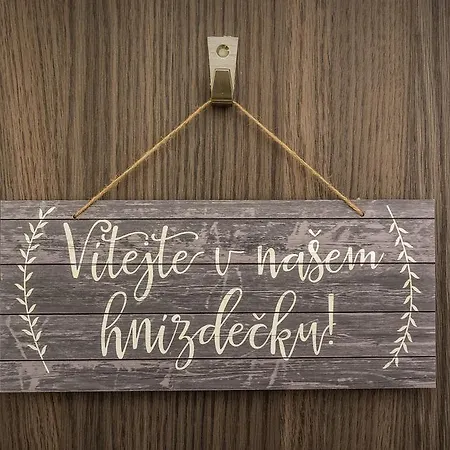 Vítejte v našem
hnízdečku!